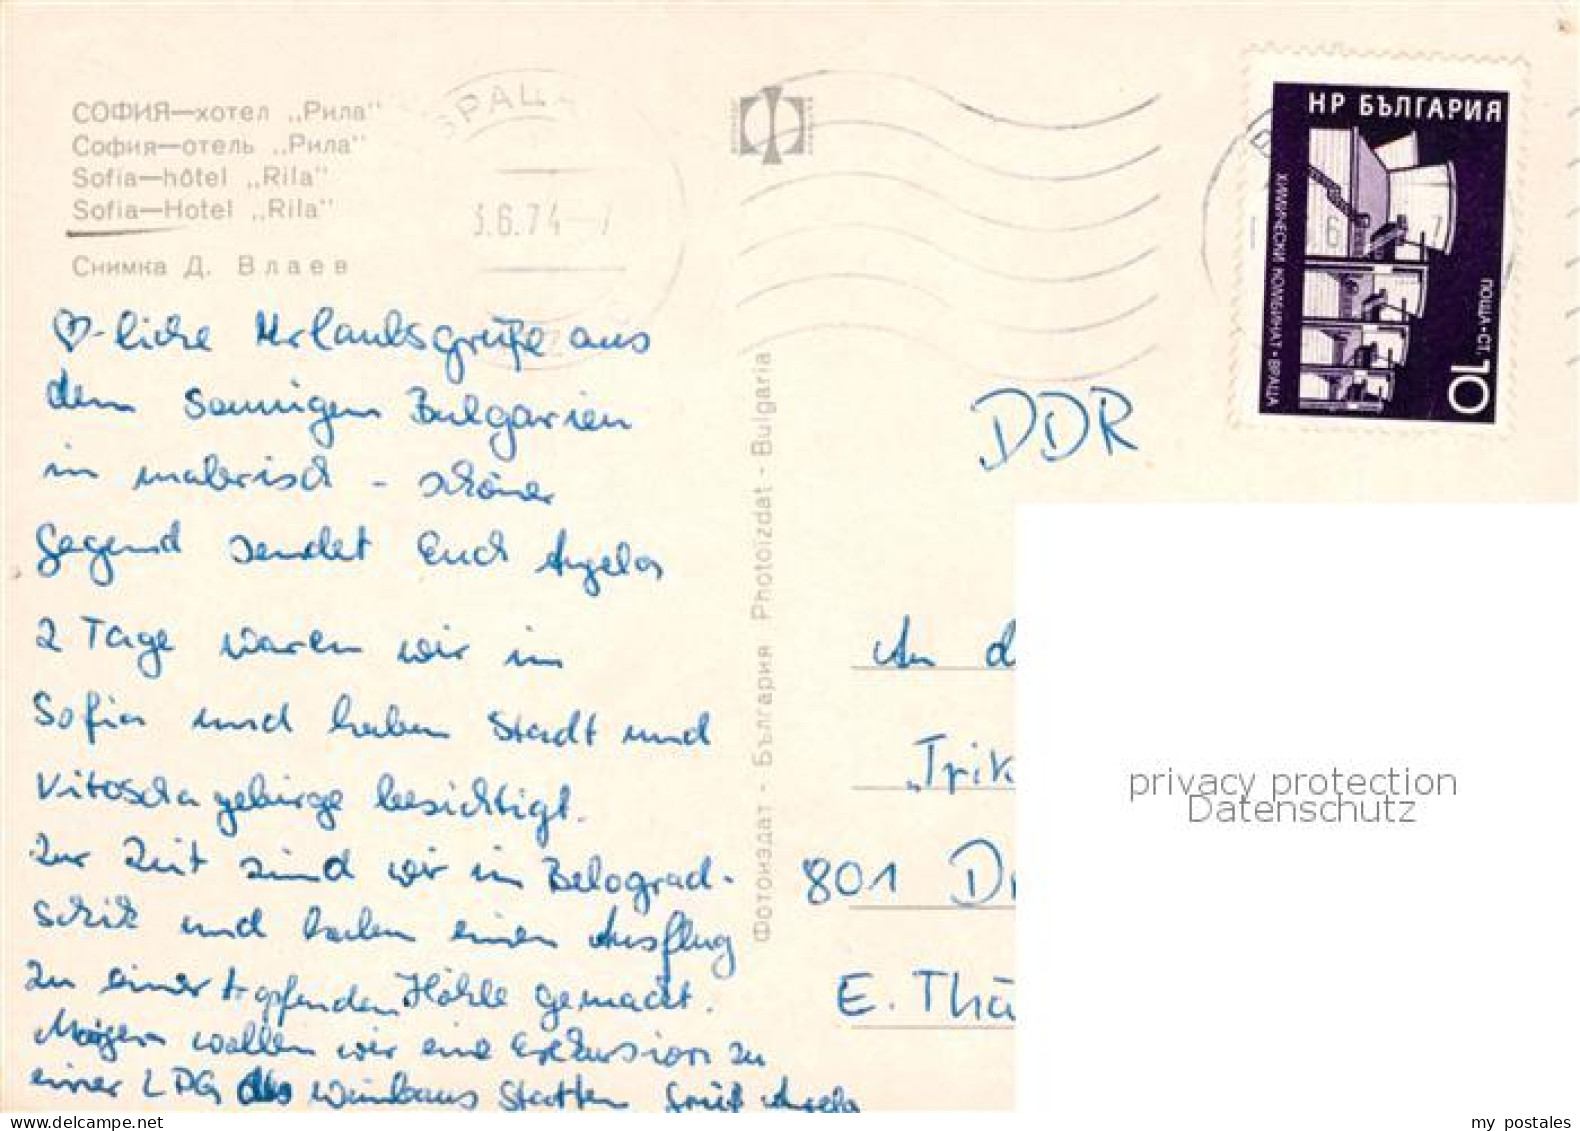 СОФИЯ—хотел „Рила"
София—отель „Рила"
Sofia—hôtel „Rila"
Sofia—Hotel „Rila"
Снимка Д. Влаев
ВРАЦА
3.6.74-7
НР БЪЛГАРИЯ
ХИМИЧЕСКИ КОМБИНАТ·ВРАЦА
ПОЩА·СТ. 10
♡-liche Urlaubsgrüße aus
dem sonnigen Bulgarien
in malerisch - schöner
Gegend sendet Euch Angela
2 Tage waren wir in
Sofia und haben Stadt und
Vitoschagebirge besichtigt.
Zur Zeit sind wir in Belograd-
schik und haben einen Ausflug
zu einer tropfenden Höhle gemacht.
Morgen wollen wir eine Exkursion zu
einer LPG des Weinbaus starten. Gruß Angela
Фотоиздат - България Photoizdat - Bulgaria
DDR
An d
„Trik
801 Dr
E. Thä
privacy protection
Datenschutz
my postales